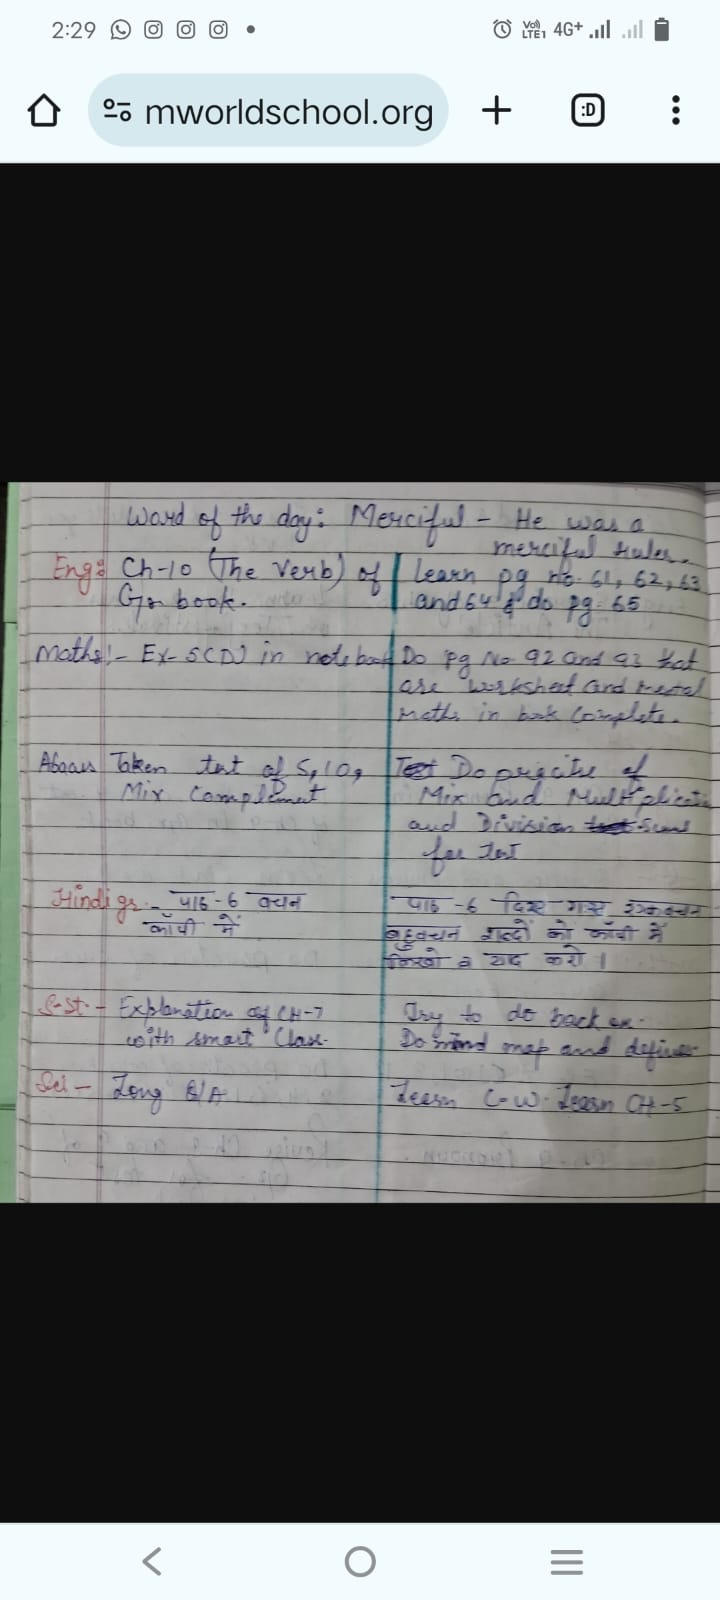 2:29
Vo) LTE1 4G+
mworldschool.org
:D
Word of the day: Merciful - He was a
merciful ruler.
Eng: Ch-10 (The Verb) of
Gr. book.
Learn pg no. 61, 62, 63
and 64 & do pg. 65
Maths:- Ex- 5(D) in notebook
Do pg No 92 and 93 that
are worksheet and mental
maths in book complete.
Abacus Taken test of 5, 10,
Mix complement
Do of
Mix and
and Division Sums
for test
Hindi gr. - पाठ-6 वचन
कॉपी में
पाठ-6 दिए गए एकवचन
बहुवचन शब्दों को कॉपी में
लिखो व याद करो।
S.st. - Explanation of CH-7
with smart Class.
Try to do back ex.
Do mind map and define
Sci - Long Q/A
Learn C-W. Learn CH-5